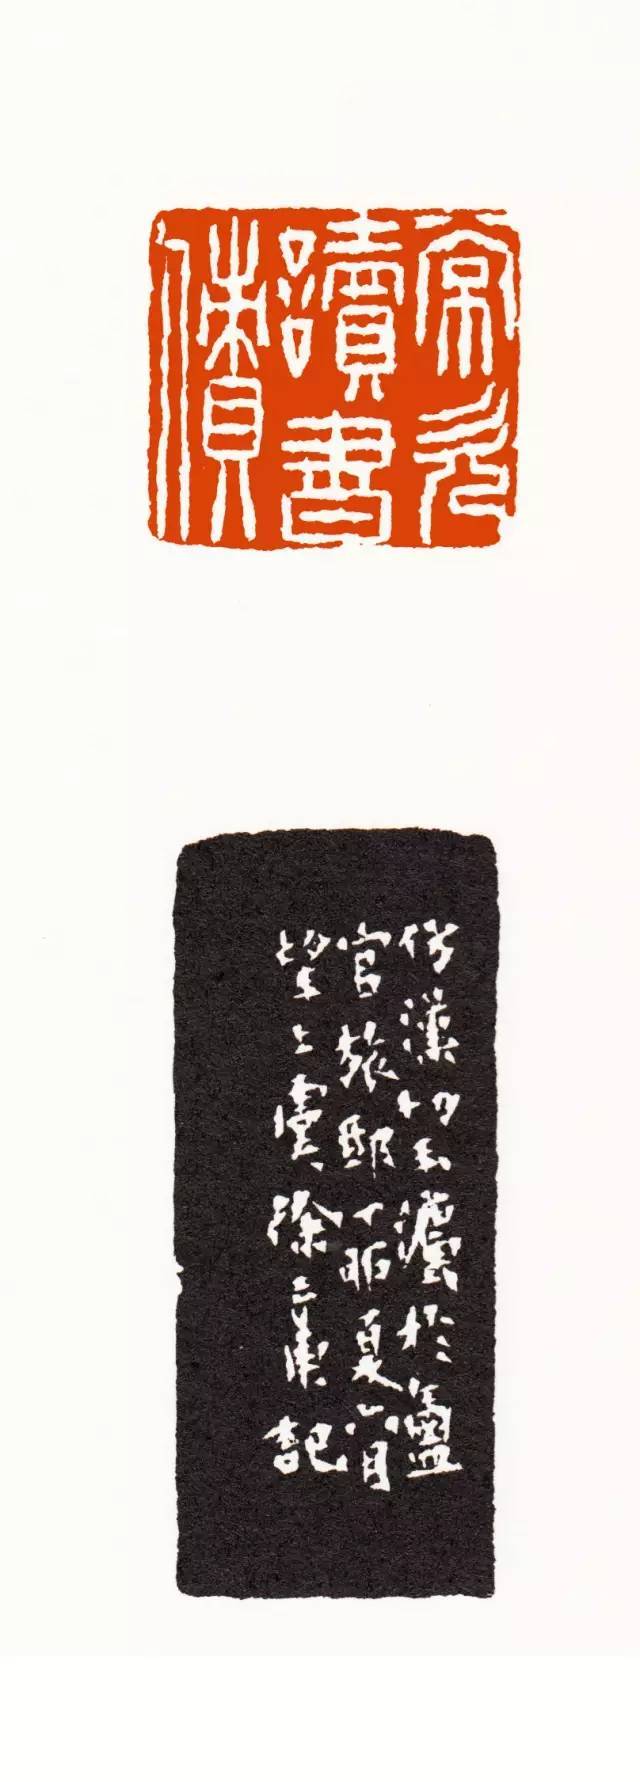 欠
讀書
債
仿漢切玉灋於鹽
官旅邸丁卯夏六月
望上虞徐三庚記